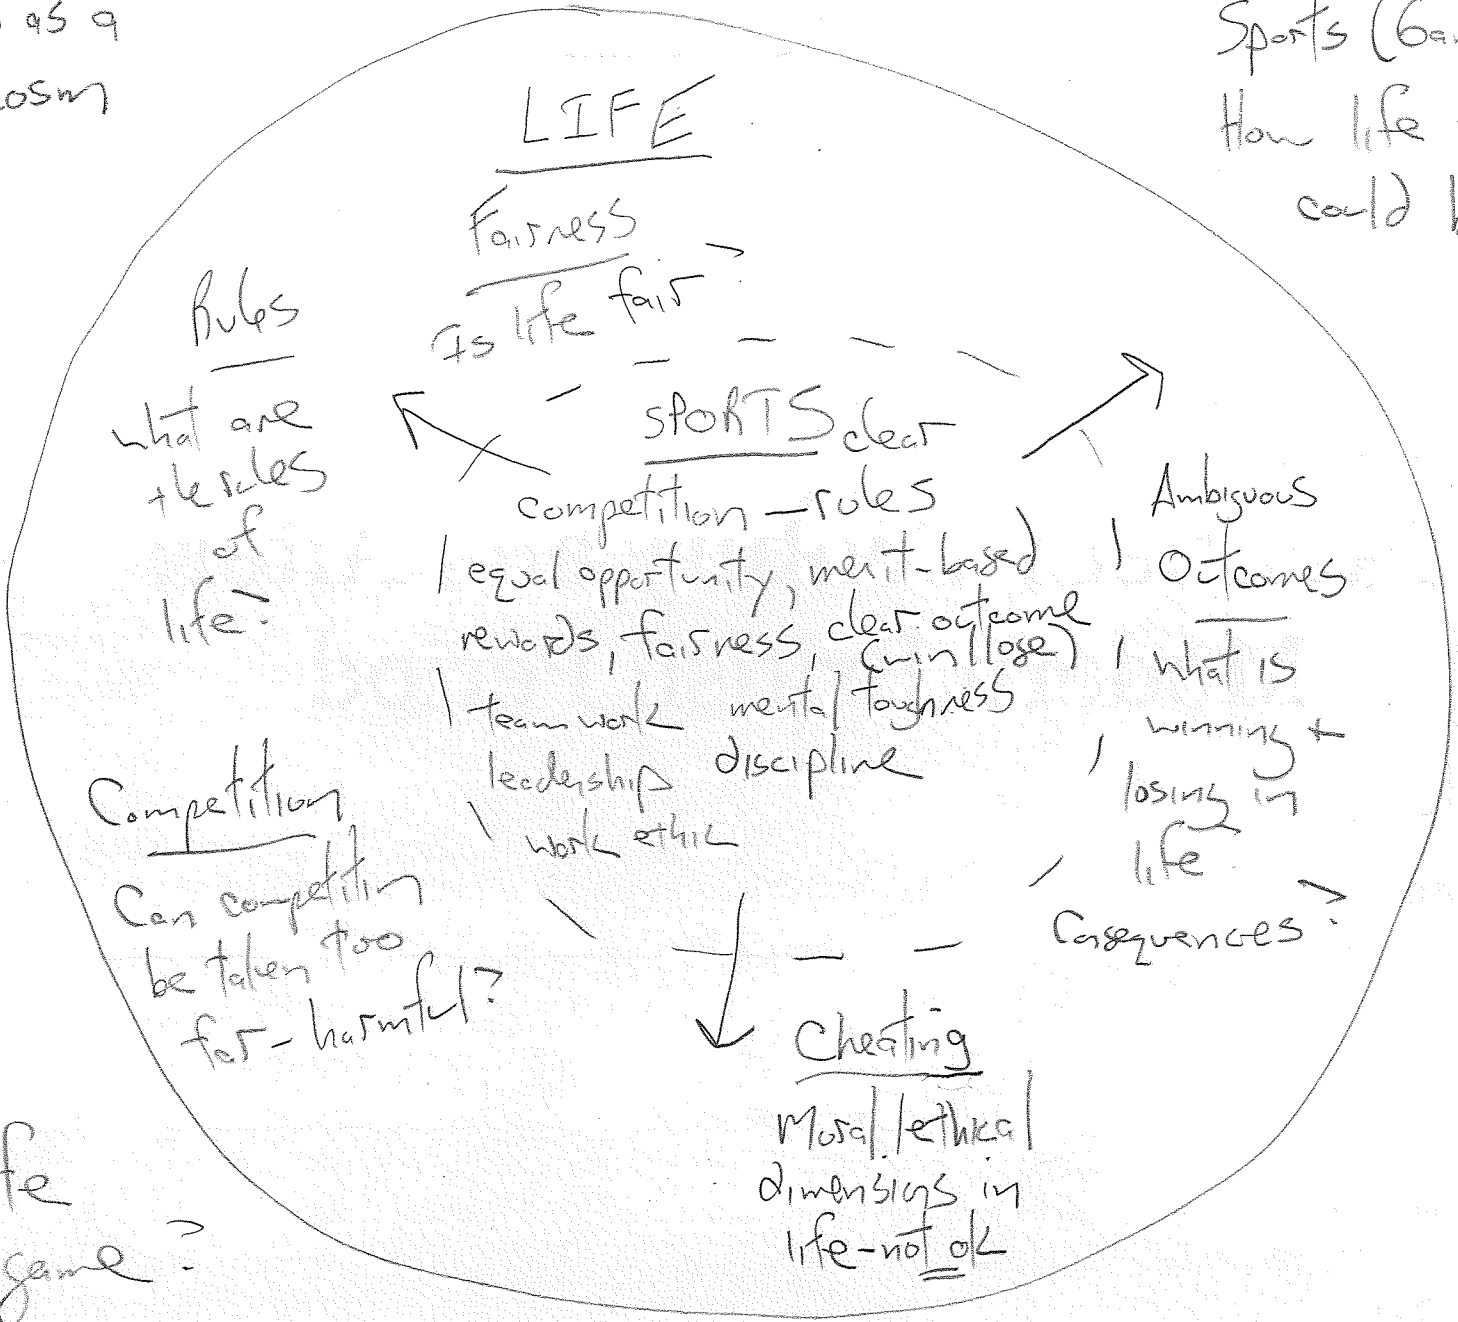 as a
cosm
Sports (Ga
How life
could b
LIFE
Fairness
Is life fair?
Rules
what are
the rules
of
life?
SPORTS
clear
competition - rules
equal opportunity, merit-based
rewards, fairness, clear outcome
(win/lose)
teamwork mental toughness
leadership discipline
work ethic
Ambiguous
Outcomes
what is
winning +
losing in
life
Consequences?
Competition
Can competition
be taken too
far - harmful?
Cheating
Moral/ethical
dimensions in
life - not ok
fe
game?